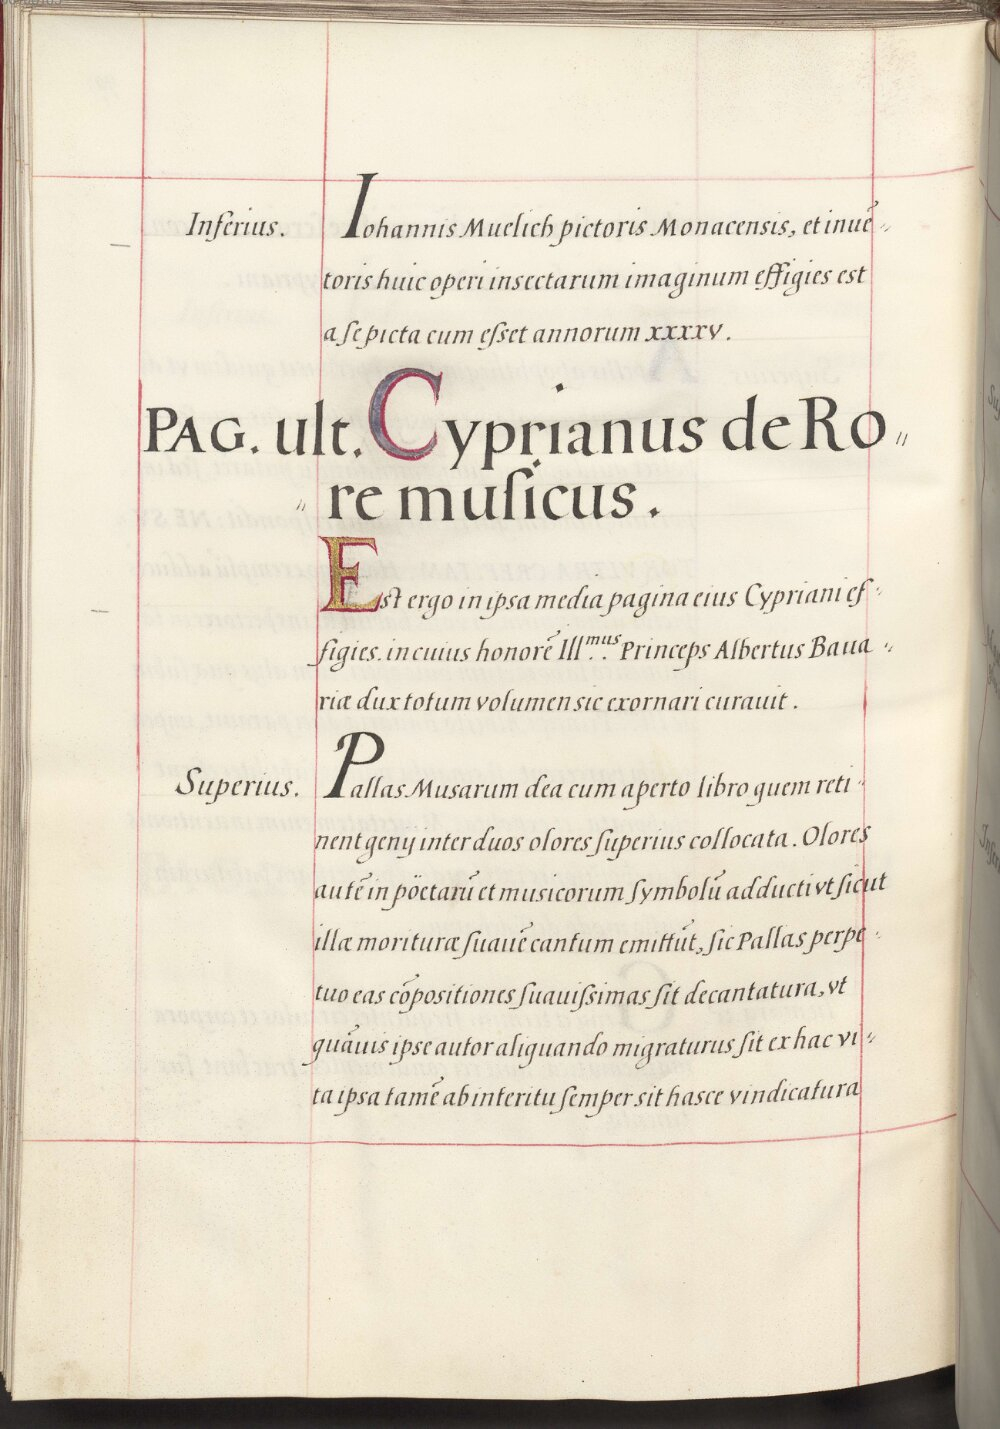 Inferius. Iohannis Muelich pictoris Monacensis, et inuē⸗
toris huic operi insectarum imaginum effigies est
a se picta cum esset annorum xxxxv.
PAG. ult. Cyprianus de Ro⸗
⸗re musicus.
Est ergo in ipsa media pagina eius Cypriani ef⸗
figies. in cuius honorē Ill.mus. Princeps Albertus Baua⸗
riæ dux totum volumen sic exornari curauit.
Superius. Pallas Musarum dea cum aperto libro quem reti⸗
nent genij inter duos olores superius collocata. Olores
autē in pöetarū et musicorum symbolū adducti vt sicut
illæ morituræ suauē cantum emittūt, sic Pallas perpe⸗
tuo eas cōpositiones suauissimas sit decantatura, vt
quāuis ipse autor aliquando migraturus sit ex hac vi⸗
ta ipsa tamē ab interitu semper sit hasce vindicatura